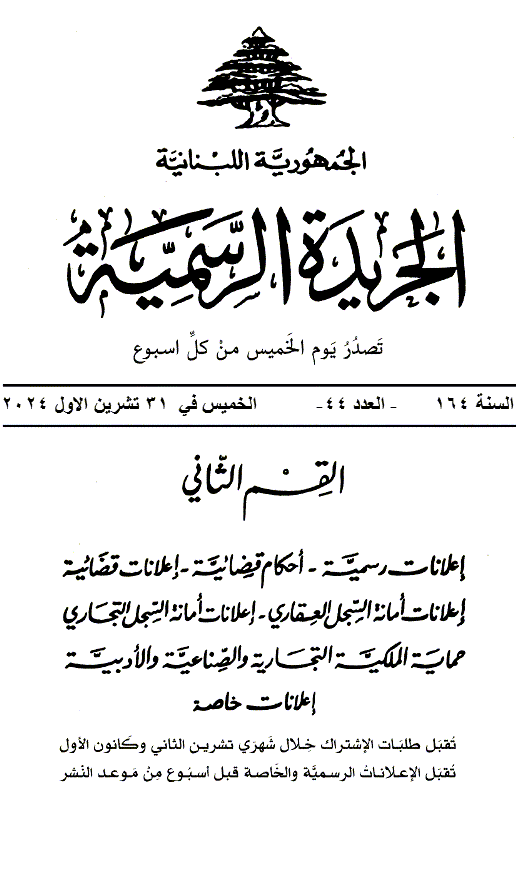 الجمهورية اللبنانية
الجريدة الرسمية
تصدر يوم الخميس من كل اسبوع
السنة ١٦٤ - العدد ٤٤- الخميس في ٣١ تشرين الاول ٢٠٢٤
القسم الثاني
إعلانات رسمية - أحكام قضائية - إعلانات قضائية
إعلانات أمانة السجل العقاري - إعلانات أمانة السجل التجاري
حماية الملكية التجارية والصناعية والأدبية
إعلانات خاصة
تُقبَل طلبَات الإشتراك خِلال شَهرَي تشرين الثاني وكَانون الأول
تُقبَل الإعلاناتُ الرسميَّة والخَاصة قبل أسبُوع مِنْ مَوعد النَشر